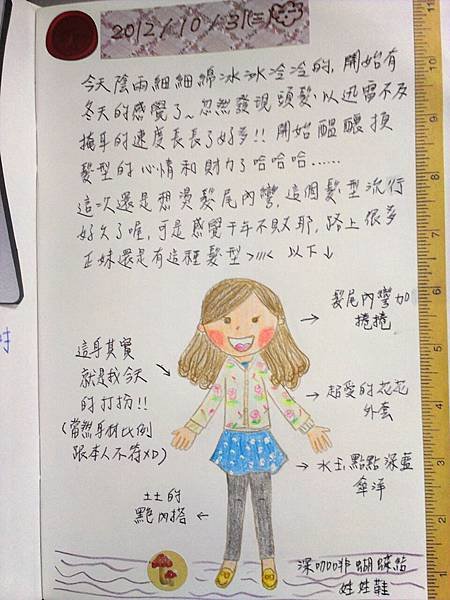 2012/10/31(三)
今天陰雨細細綿冰冰冷冷的，開始有
冬天的感覺了~忽然發現頭髮以迅雷不及
掩耳的速度長長了好多!! 開始醞釀換
髮型的心情和財力了哈哈哈......
這次還是想燙髮尾內彎，這個髮型流行
好久了喔，可是感覺千年不敗耶，路上很多
正妹還是有這種髮型>///< 以下↓
髮尾內彎加
捲捲
這身其實
就是我今天
的打扮!!
(當然身材比例
跟本人不符XD)
超愛的花花
外套
水玉點點深藍
傘洋
土土的
黑色內搭
深咖啡蝴蝶結
娃娃鞋
11
10
9
8
7
6
5
4
3
2